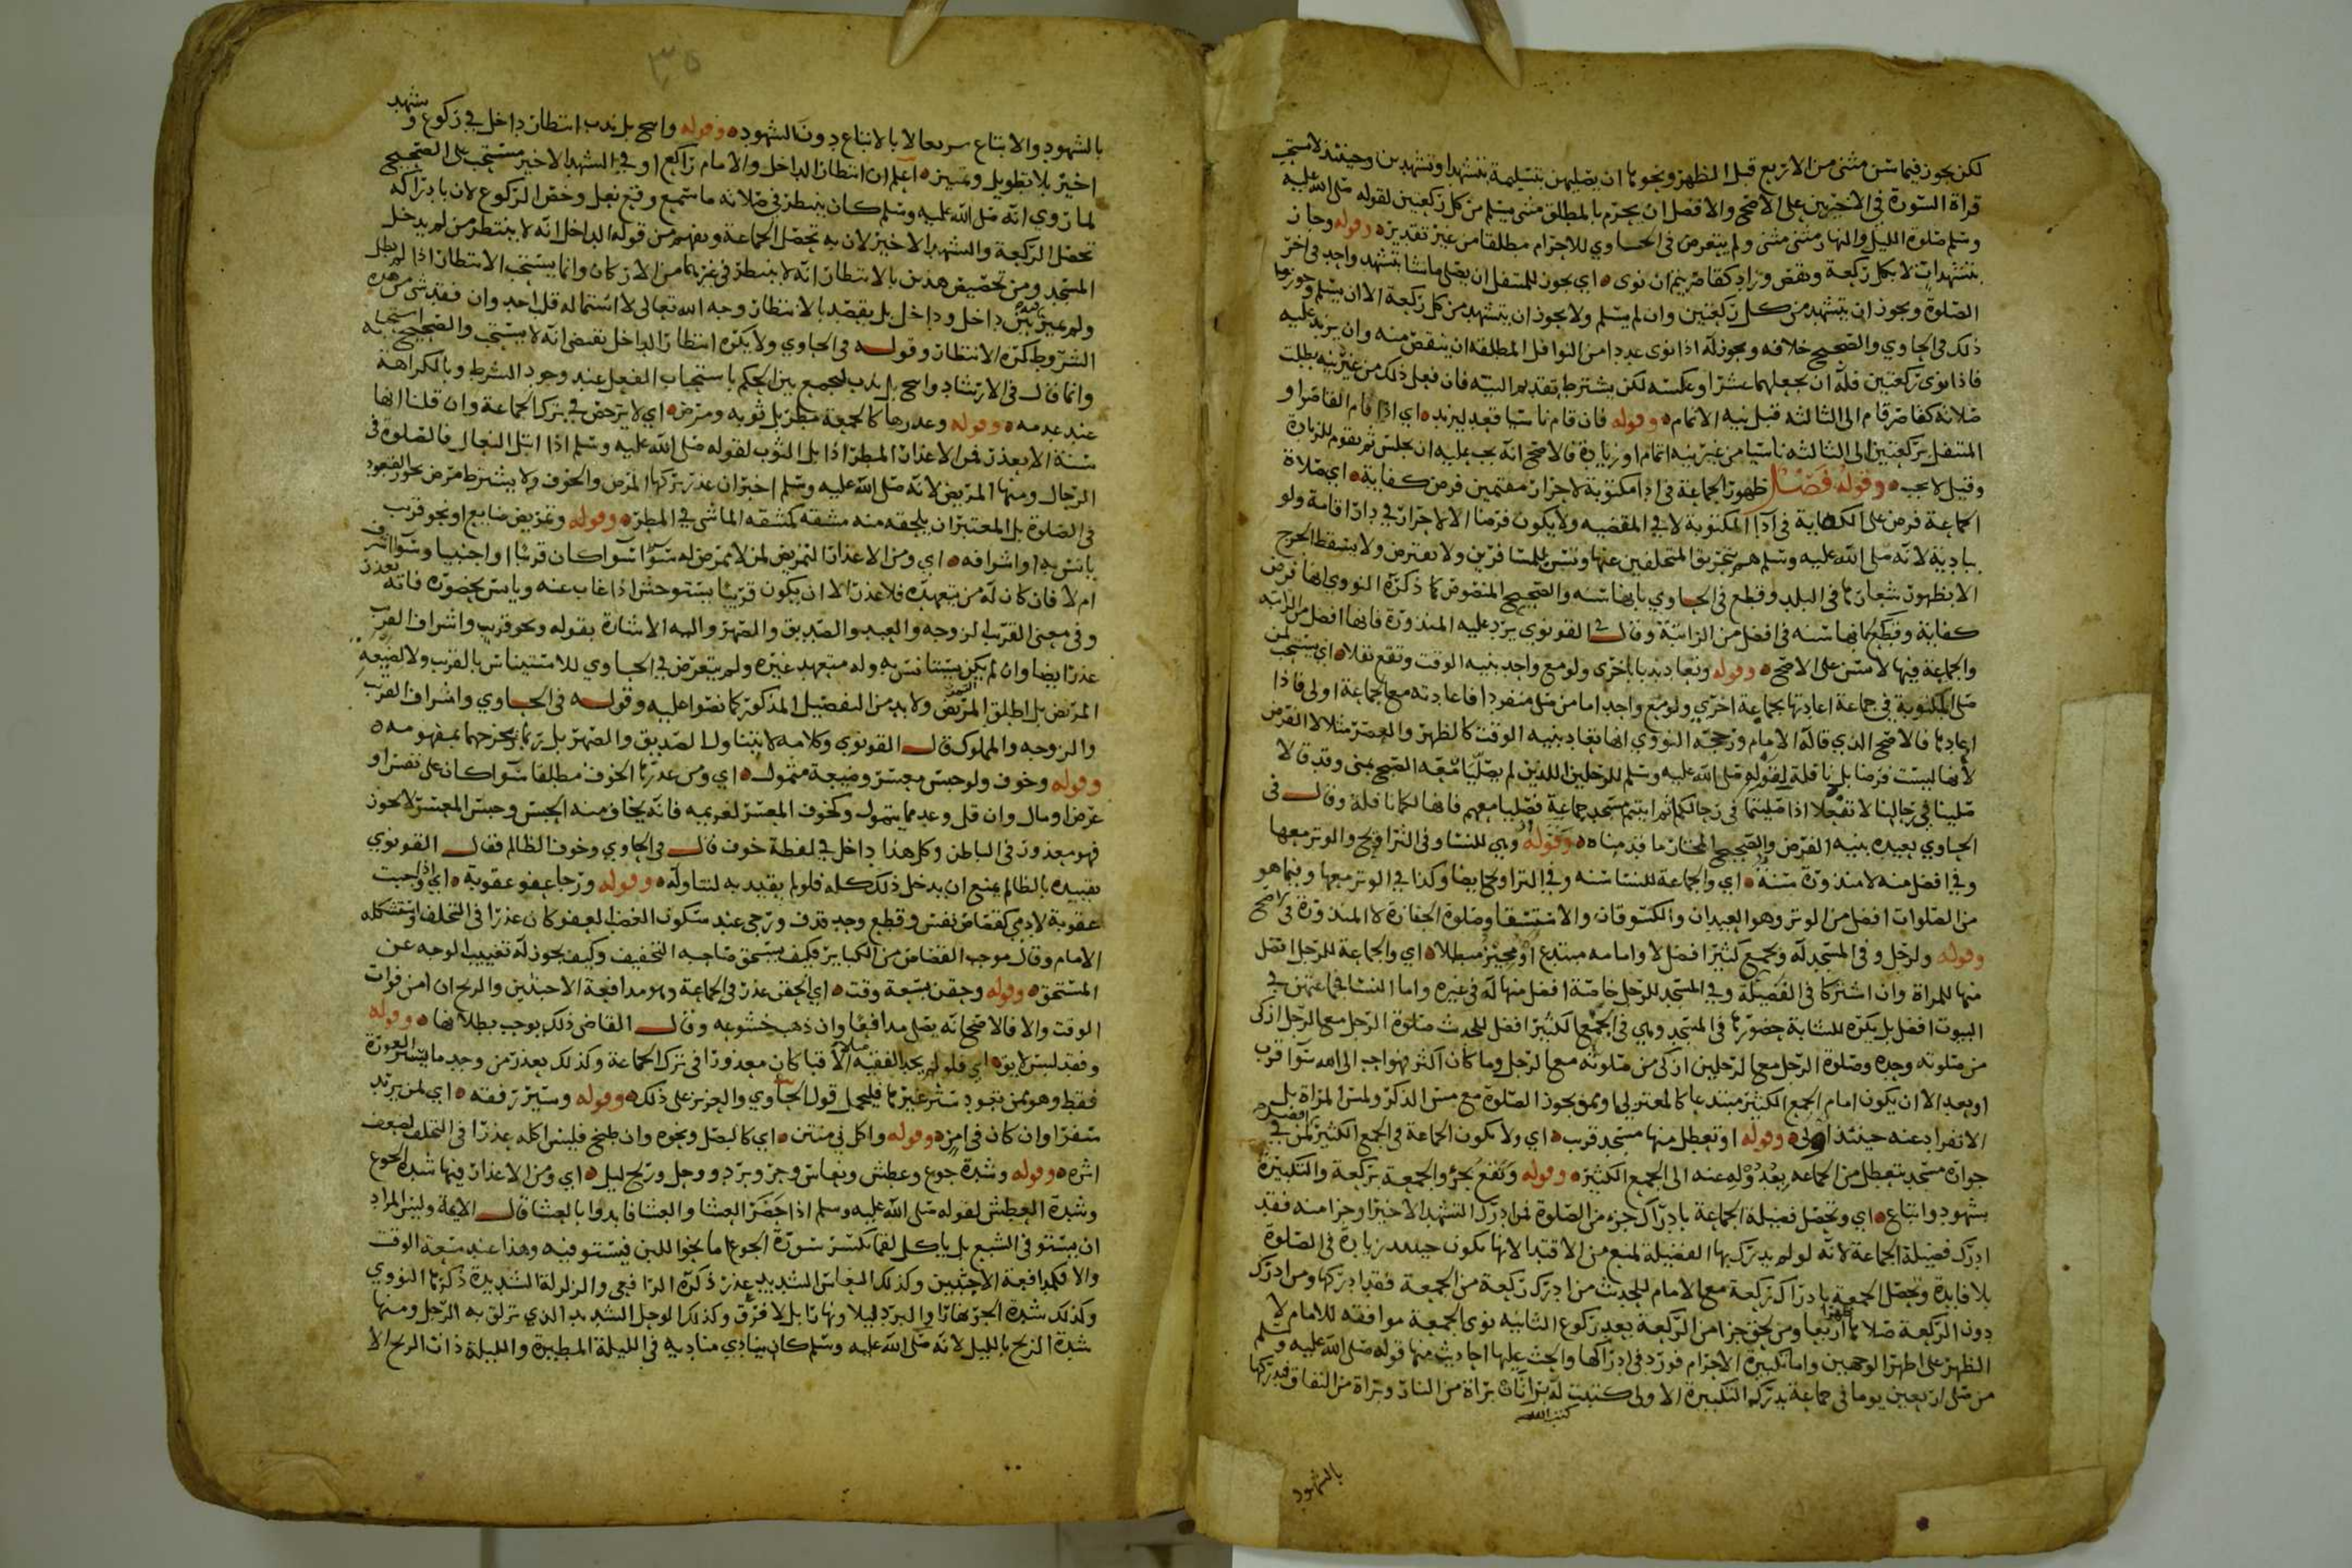 لكن يجوز فيما سن مثنى من الاربع قبل الظهر ونحوها ان يصليهن بتسليمة بتشهد او تشهدين وحينئذ لا يستحب
قراة السورة في الاخيرتين على الاصح والافضل ان يحرم بالمطلق مثنى يسلم من كل ركعتين لقوله صلى الله عليه
وسلم صلوة الليل والنهار مثنى مثنى ولم يتعرض في الحاوي للاحرام مطلقا من غير تقدير وقوله وجاز
بتشهدات لا بكل ركعة ونقص وزاد كقاصر يتم ان نوى اي يجوز للمتنفل ان يصلي ما شا بتشهد واحد في اخر
الصلوة ويجوز ان يتشهد من كل ركعتين وان لم يسلم ولا يجوز ان يتشهد من كل ركعة الا ان يسلم وجوز
ذلك في الحاوي والصحيح خلافه ويجوز له اذا نوى عددا من النوافل المطلقة ان ينقص منه وان يزيد عليه
فاذا نوى ركعتين فله ان يجعلهما عشرا وعكسه لكن يشترط تقديم النية فان فعل ذلك من غير نية بطلت
صلاته كقاصر قام الى الثالثه قبل نيه الاتمام وقوله فان قام ناسيا قعد ليزيد اي اذا قام القاصر او
المتنفل بركعتين الى الثالثه ناسيا من غير نيه اتمام او زيادة فالاصح انه يجب عليه ان يجلس ثم يقوم للزيادة
وقيل لا يجب وقوله فصل ظهور الجماعة في ادا مكتوبة لاحرار مقيمين فرض كفاية اي صلاة
الجماعة فرض على الكفاية في ادا المكتوبة لا في المقضيه ولا يكون فرضا الا لاحرار في دار اقامة ولو
بادية لانه صلى الله عليه وسلم هم بتحريق المتخلفين عنها وتسن للمسافرين ولا تفترض ولا يسقط الحرج
الا بظهور شعارها في البلد وقطع في الحاوي بانها سنه والصحيح المنصوص كما ذكره النووي انها فرض
كفاية وقطع بانها سنه في افضل من الراتبة وقال في القونوي يرد عليه المنذورة فانها افضل من الراتبه
والجماعة فيها لا تسن على الاصح وقوله وتعاد ندبا باخرى ولو مع واحد بنيه الوقت وتقع نفلا اي يستحب لمن
صلى المكتوبة في جماعة اعادتها بجماعة اخرى ولو مع واحد اما من صلى منفردا فاعادته مع الجماعة اولى فاذا
اعادها فالاصح الذي قاله الامام ورجحه النووي انها تعاد بنيه الوقت كالظهر والعصر مثلا لا الفرض
لانها ليست فرضا بل نافلة لقوله صلى الله عليه وسلم للرجلين اللذين لم يصليا معه الصبح بمنى وقد قالا
صلينا في رحالنا لا تفعلا اذا صليتما في رحالكما ثم اتيتم مسجد جماعة فصليا معهم فانها لكما نافلة وقال في
الحاوي يعيده بنيه الفرض والصحيح المختار ما قدمناه وقوله وهي للنسا وفي التراويح والوتر معها
وفي افضل منه لا منذورة سنة اي والجماعة للنسا سنه وفي التراويح ايضا وكذا في الوتر معها وفيما هو
من الصلوات افضل من الوتر وهو العيدان والكسوفان والاستسقا وصلوة الجنازة لا المنذورة في الاصح
وقوله ولرجل وفي المسجد له وبجمع كثير افضل لا وامامه مبتدع او مجيز مبطلا اي والجماعة للرجل افضل
منها للمراة وان اشتركا في الفضيلة وفي المسجد للرجل خاصة افضل منها له في غيره واما النسا فجماعتهن في
البيوت افضل بل يكره للشابة حضورها في المسجد وهي في الجمع الكثير افضل للحديث صلوة الرجل مع الرجل ازكى
من صلوته وحده وصلوة الرجل مع الرجلين ازكى من صلوته مع الرجل وما كان اكثر فهو احب الى الله سوا قرب
او بعد الا ان يكون امام الجمع الكثير مبتدعا كالمعتزلي او ممن يجوز الصلوة مع مس الذكر ولمس المراة بل
الانفراد عنه حينئذ اولى وقوله او تعطل منها مسجد قرب اي ولا تكون الجماعة في الجمع الكثير افضل لمن في
جواره مسجد يتعطل من الجماعه بعدوله عنه الى الجمع الكثير وقوله وتقع بجزء والجمعة بركعة والتكبيرة
بشهود واتباع اي وتحصل فضيلة الجماعة بادراك جزء من الصلوة فمن ادرك التشهد الاخير او جزا منه فقد
ادرك فضيلة الجماعة لانه لو لم يدرك بها الفضيلة لمنع من الاقتدا لانها تكون حينئذ زيادة في الصلوة
بلا فايدة وتحصل الجمعة بادراك ركعة مع الامام للحديث من ادرك ركعة من الجمعة فقد ادركها ومن ادرك
دون الركعة صلاها ظهرا اربعا ومن لحق جزا من الركعة بعد ركوع الثانيه نوى الجمعة موافقه للامام لا
الظهر على اظهر الوجهين واما تكبيرة الاحرام فورد في ادراكها والحث عليها احاديث منها قوله صلى الله عليه وسلم
من صلى اربعين يوما في جماعة يدرك التكبيرة الاولى كتبت له براتان براة من النار وبراة من النفاق
كتب الله
بالشهود
٣٥
بالشهود والاتباع سريعا لا بالاتباع دون الشهود وقوله واصح بل ندب انتظار داخل في ركوع وتشهد
اخير بلا تطويل وتمييز اعلم ان انتظار الداخل والامام راكع او في التشهد الاخير مستحب على الصحيح
لما روي انه صلى الله عليه وسلم كان ينتظر في صلاته ما سمع وقع نعل وخص الركوع لان بادراكه
تحصل الركعة والتشهد الاخير لان به تحصل الجماعة ويفهم من قوله الداخل انه لا ينتظر من لم يدخل
المسجد ومن تخصيص هذين بالانتظار انه لا ينتظر في غيرهما من الاركان وانما يستحب الانتظار اذا لم يطل
ولم يميز بين داخل وداخل بل يقصد بالانتظار وجه الله تعالى لا استمالة قلب احد وان فقد شي من هذه
الشروط كره الانتظار وقوله في الحاوي ولا يكره انتظار الداخل يقتضي انه لا يستحب والصحيح استحبابه
وانما قال في الارشاد واصح بل ندب ليجمع بين الحكم باستحباب الفعل عند وجود الشرط وبالكراهة
عند عدمه وقوله وعذرها كالجمعة مطر بل ثوبه ومرض اي لا يرخص في ترك الجماعة وان قلنا انها
سنة الا بعذر فمن الاعذار المطر اذا بل الثوب لقوله صلى الله عليه وسلم اذا ابتل النعال فالصلوة في
الرحال ومنها المريض لانه صلى الله عليه وسلم اخبر ان عذر تركها المرض والخوف ولا يشترط مرض يجوز القعود
في الصلوة بل المعتبر ان يلحقه منه مشقه كمشقه الماشي في المطر وقوله وتمريض ضايع او نحو قريب
يانس به او اشرافه اي ومن الاعذار التمريض لمن لا ممرض له سوا كان قريبا او اجنبيا وسوا اشرف
ام لا فان كان له من يتعهده فلا عذر الا ان يكون قريبا يستوحش اذا غاب عنه ويانس بحضوره فانه يعذر
وفي معنى القريب الزوجه والعبد والصديق والصهر واليه الاشارة بقوله ونحو قريب واشراف القريب
عذر ايضا وان لم يكن يستانس به وله متعهد غيره ولم يتعرض في الحاوي للاستيناس بالقرب ولا الضيعه
المريض بل اطلق المريض ولا بد من التفصيل المذكور كما نصوا عليه وقوله في الحاوي واشراف القريب
والزوجه والمملوك قال القونوي وكلامه لا يتناول الصديق والصهر بل ربما يخرجهما بمفهومه
وقوله وخوف ولو حبس معسر وضيعة متمول اي ومن عذرها الخوف مطلقا سوا كان على نفس او
عرض او مال وان قل وعد مما يتمول وكخوف المعسر لغريمه فانه يخاف منه الحبس وحبس المعسر لا يجوز
فهو معذور في الباطن وكل هذا داخل في لفظة خوف قال في الحاوي وخوف الظالم فقال القونوي
تقييده بالظالم يمنع ان يدخل ذلك كله فلو لم يقيد به لتناوله وقوله ورجا عفو عقوبة اي اذا وجبت
عقوبة لادمي كقصاص نفس وقطع وحد قذف ورجى عند سكون الغضب العفو كان عذرا في التخلف واستشكله
الامام وقال موجب القصاص من الكباير فكيف يستحق صاحبه التخفيف وكيف يجوز له تغييب الوجه عن
المستحق وقوله وحقن بسعة وقت اي الحقن عذر في الجماعة وهو مدافعة الاخبثين والريح ان امن فوات
الوقت والا فالاصح انه يصلي مدافعا وان ذهب خشوعه وقال القاضي ذلك يوجب بطلانها وقوله
وفقد لبس لايق اي فلو لم يجد الفقيه الا قبا كان معذورا في ترك الجماعة وكذلك يعذر من وجد ما يستر العورة
فقط وهو ممن يتعود ستر غيرها فليحمل قول الحاوي والعري على ذلك وقوله وسير رفقه اي لمن يريد
سفرا وان كان في امن وقوله واكل ني منتن اي كالبصل ونحوه وان طبخ فليس اكله عذرا في التخلف لضعف
اثره وقوله وشدة جوع وعطش ونعاس وحر وبرد ووحل وريح ليل اي ومن الاعذار فيها شدة الجوع
وشدة العطش لقوله صلى الله عليه وسلم اذا حضر العشا والعشا فابدوا بالعشا قال الايمة وليس المراد
ان يستوفي الشبع بل ياكل لقما تكسر سورة الجوع اما نحو اللبن فيستوفيه وهذا عند سعة الوقت
والا فكمدافعة الاخبثين وكذلك النعاس الشديد عذر ذكره الرافعي والزلزلة الشديدة ذكرها النووي
وكذلك شدة الحر نهارا والبرد ليلا ونهارا بل لا فرق وكذلك الوحل الشديد الذي تزلق به الرجل ومنها
شدة الريح بالليل لانه صلى الله عليه وسلم كان ينادي مناديه في الليلة المطيرة والليلة ذات الريح الا